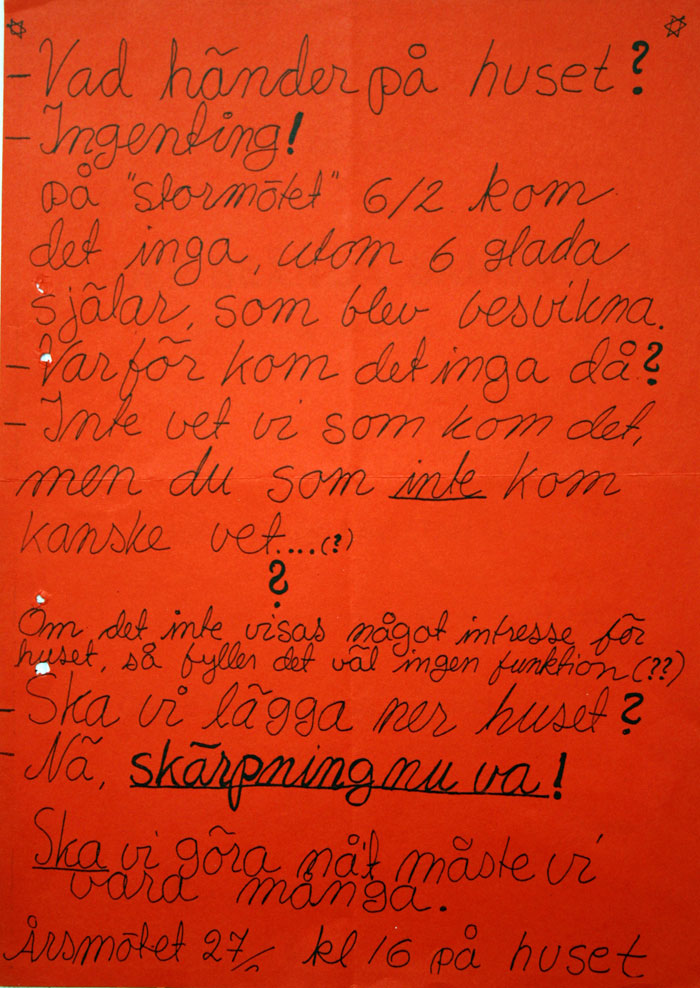 - Vad händer på huset?
- Ingenting!
på "stormötet" 6/2 kom
det inga, utom 6 glada
själar, som blev besvikna.
- Varför kom det inga då?
- Inte vet vi som kom det,
men du som inte kom
kanske vet....(?)
?
Om det inte visas något intresse för
huset, så fyller det väl ingen funktion(??)
- Ska vi lägga ner huset?
- Nä, skärpning nu va!
Ska vi göra nå't måste vi
vara många.
Årsmötet 27/ kl 16 på huset